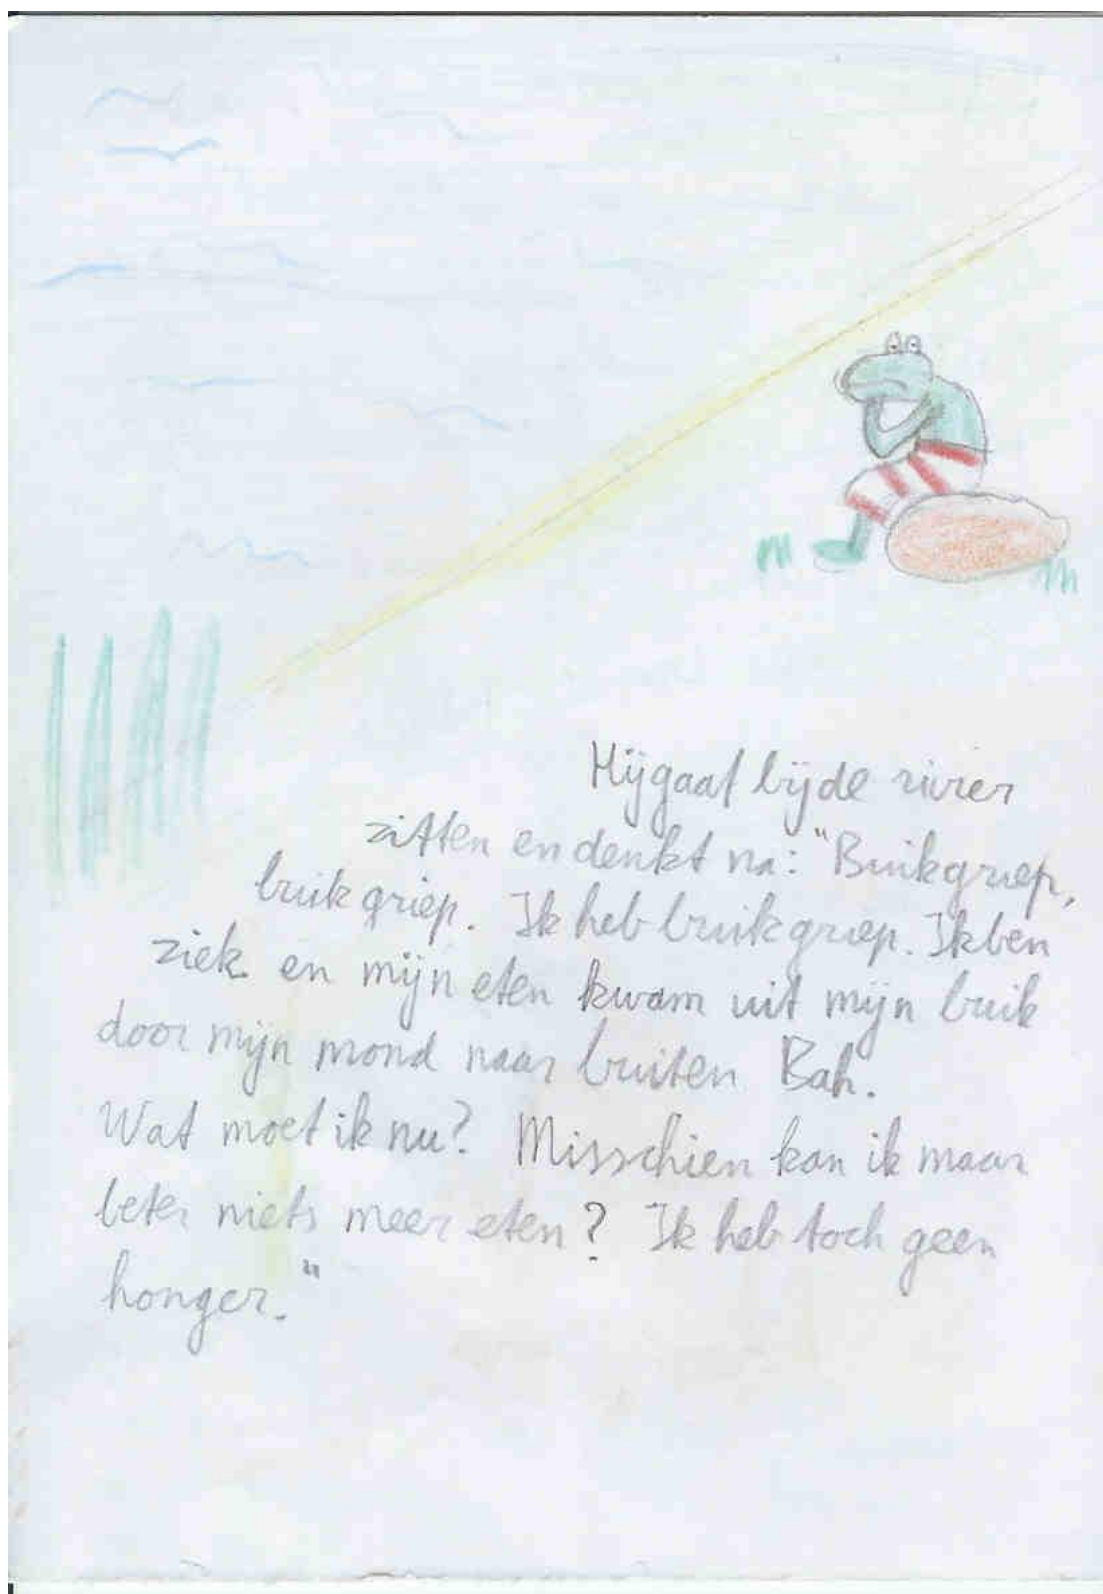 Hij gaat bij de rivier
zitten en denkt na: "Buikgriep,
buikgriep. Ik heb buikgriep. Ik ben
ziek en mijn eten kwam uit mijn buik
door mijn mond naar buiten Bah.
Wat moet ik nu? Misschien kan ik maar
beter niets meer eten? Ik heb toch geen
honger."